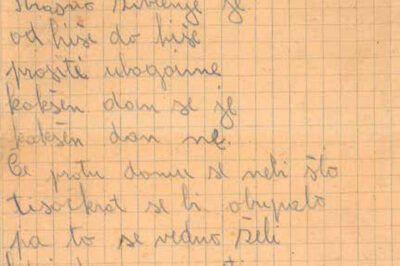 strašno življenje je
od hiše do hiše
prositi vbogaime
kakšen dan se je
kakšen dan ne.
Če protu domu se nebi što
tisočkrat se bi obupalo
pa to se vedno želi